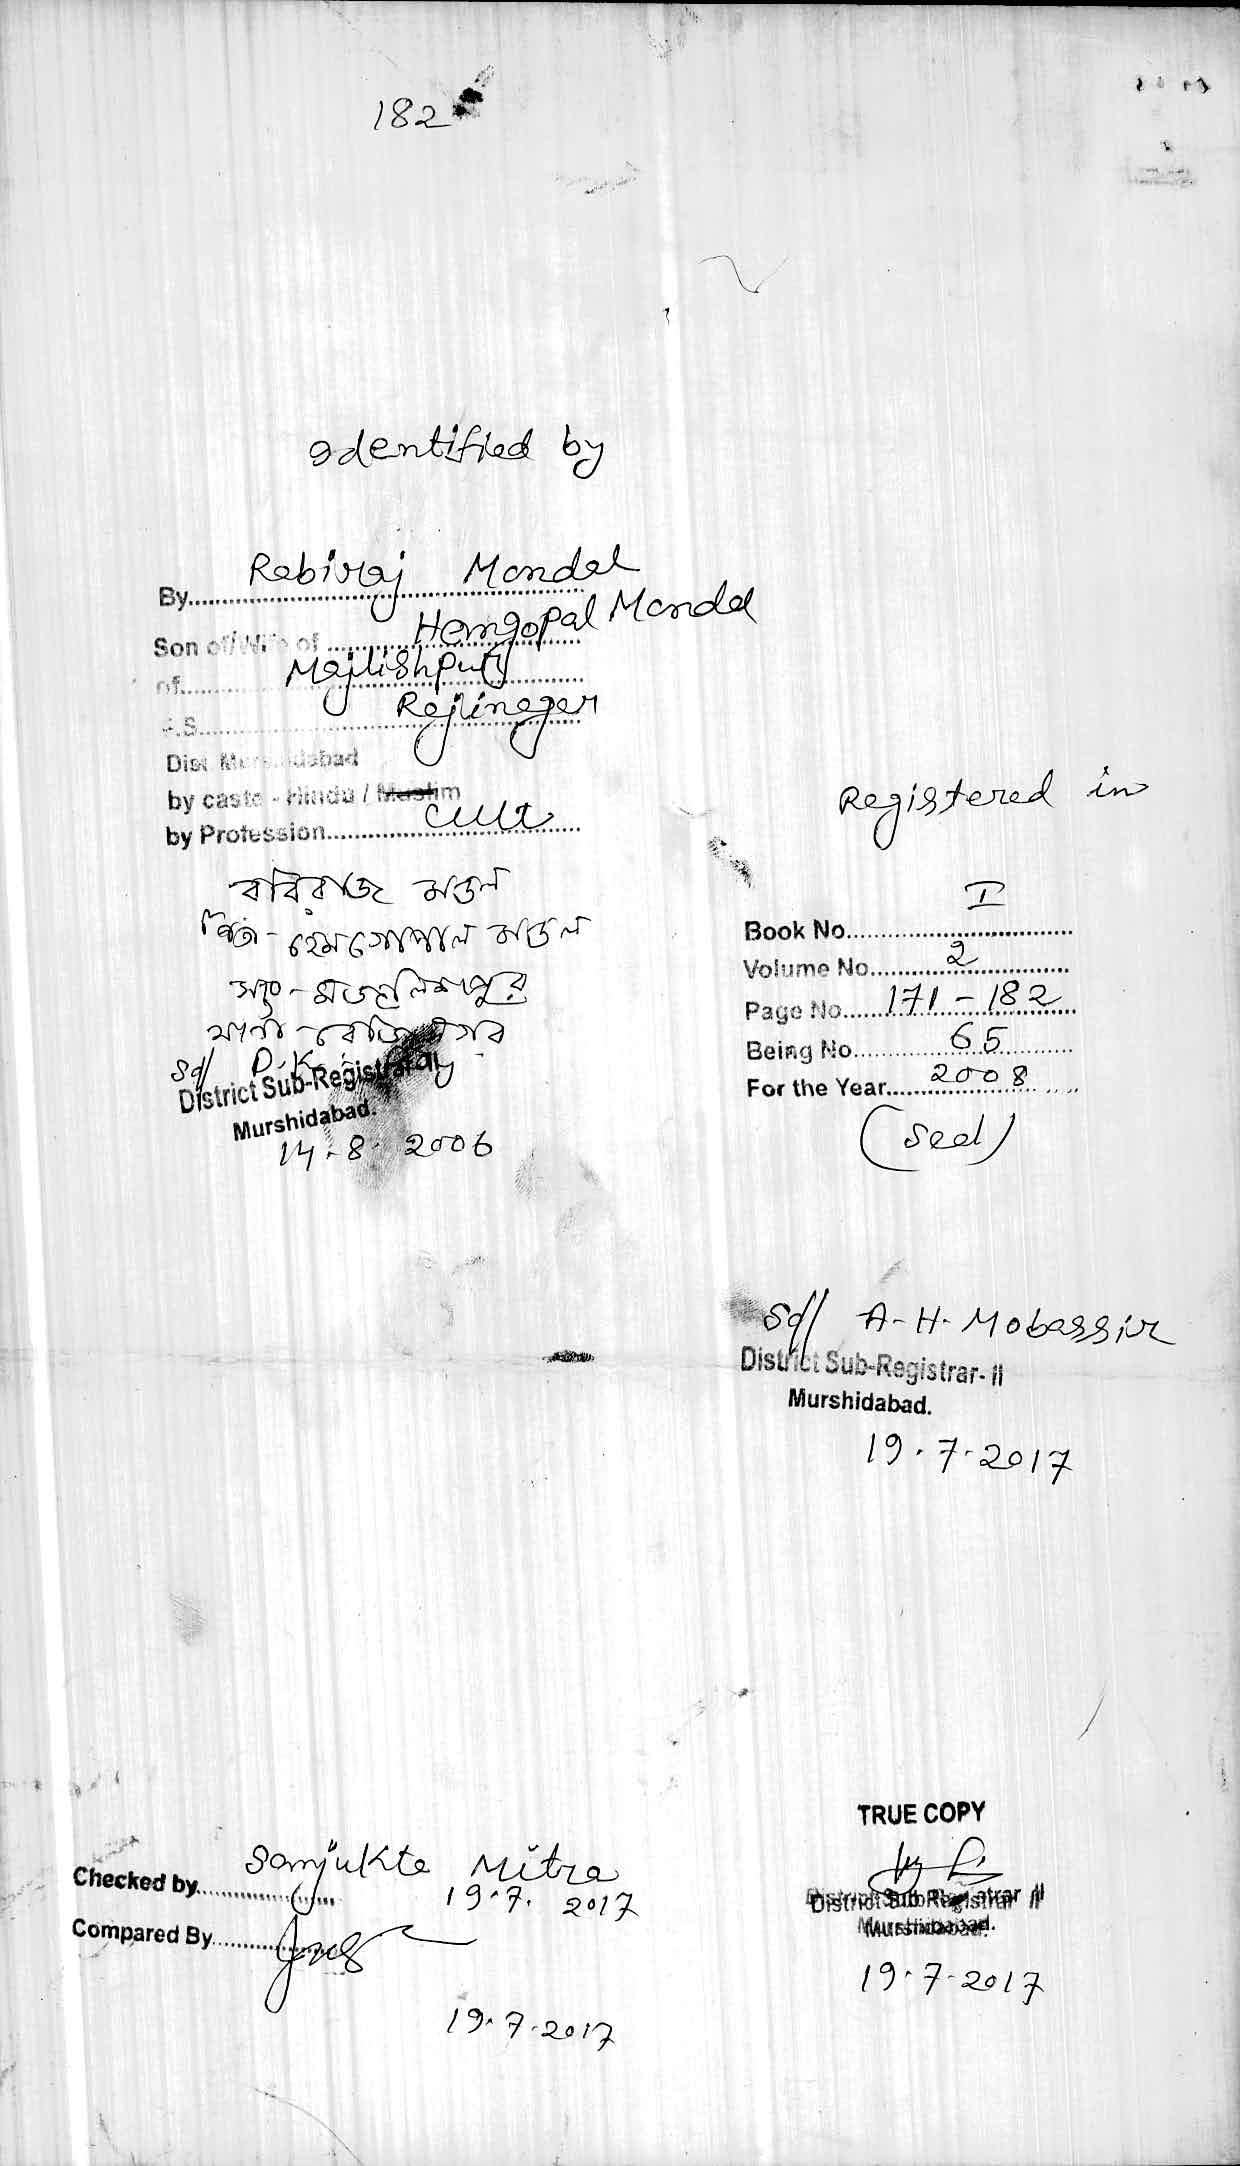 182
Identified by
By Rabiraj Mondal
Son of/Wife of Hemgopal Mondal
of Majlishpur
P.S. Rejinagar
Dist Murshidabad
by caste - Hindu / Muslim
by Profession Cult
রবিরাজ মণ্ডল
পিতা - হেমগোপাল মণ্ডল
সাং - মজলিশপুর
থানা - রেজিনগর
Sd/ D.K.
District Sub-Registrar
Murshidabad.
14.8.2006
Registered in
Book No. I
Volume No. 2
Page No. 171 - 182
Being No. 65
For the Year 2008
(Seal)
Sd/ A-H-Mobassir
District Sub-Registrar-II
Murshidabad.
19.7.2017
Checked by Sanjukta Mitra
19.7.2017
Compared By
19.7.2017
TRUE COPY
District Sub Registrar II
Murshidabad.
19.7.2017